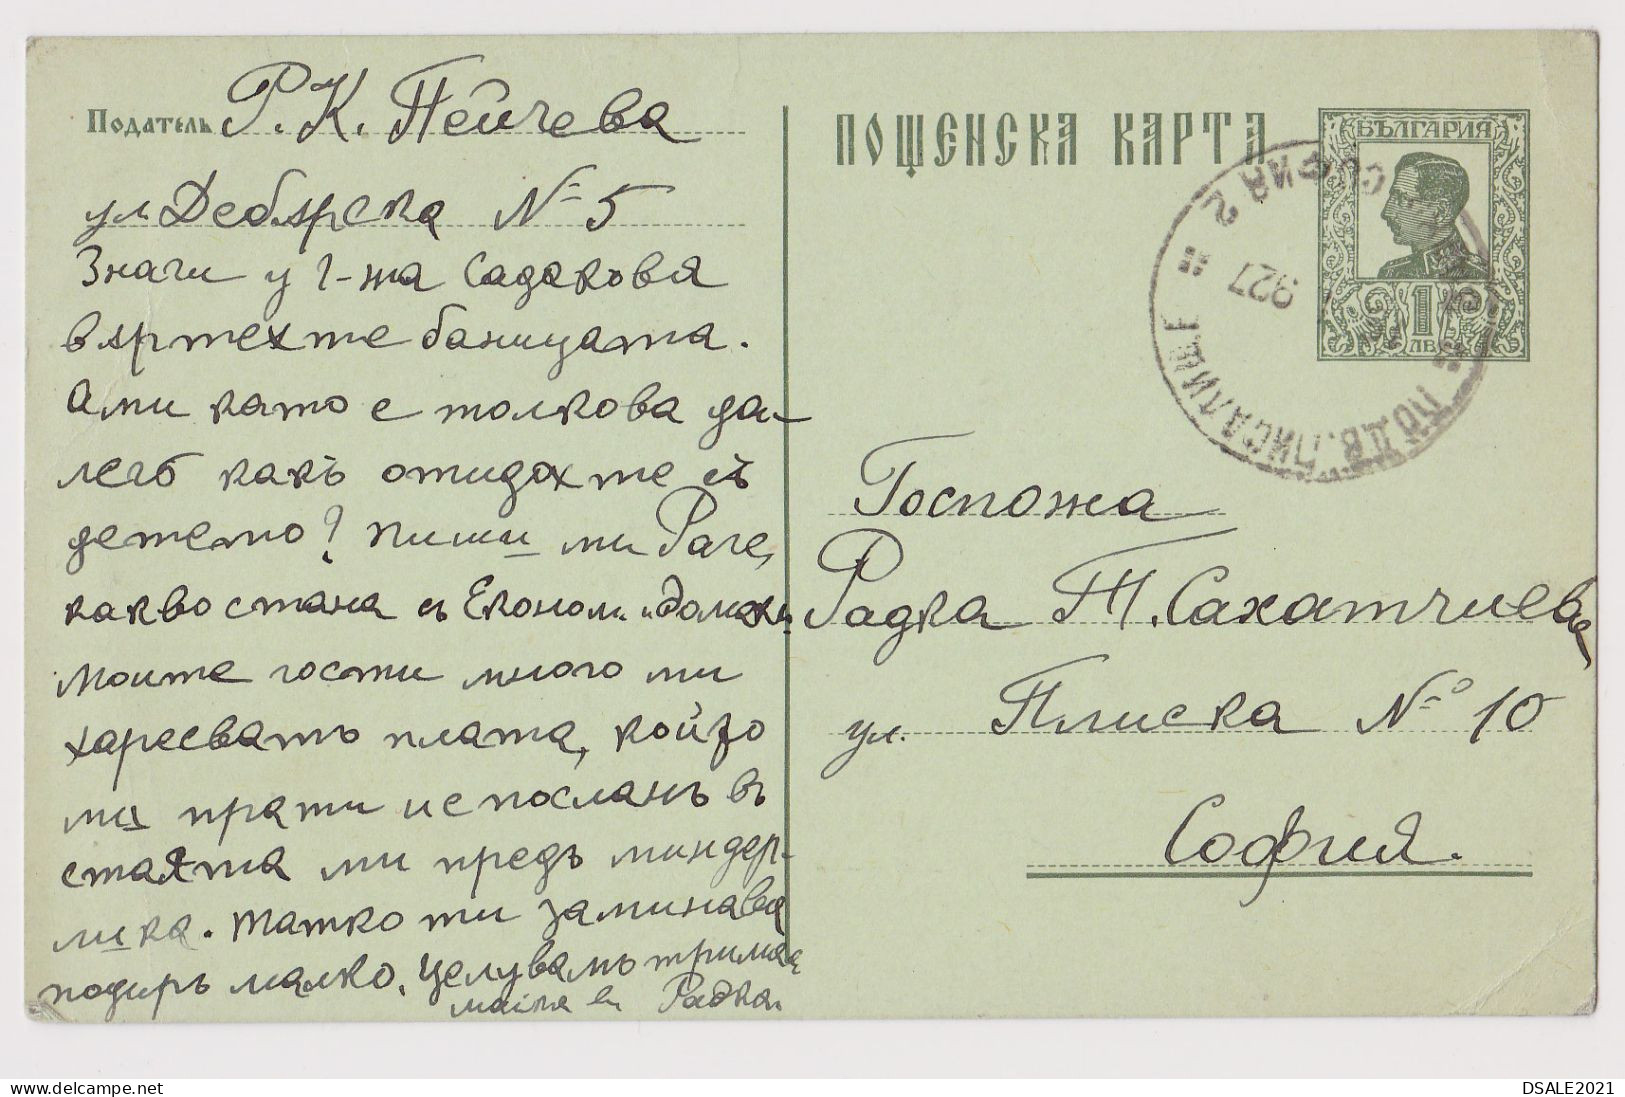 Податель Р. К. Пейчева
ул Дебърска № 5
Значи у г-жа Садакова
въртехте баницата.
Ами като е толкова да-
лечъ какъ отидохте съ
детето? Пиши ми Раче,
какво стана съ Економ. и домак.
Моите гости много ми
харесватъ плата, който
ми прати и е посланъ въ
стаята ми предъ миндер-
лика. Татко ти заминава
подиръ малко. Целувамъ трима
майка ви Радка.
ПОЩЕНСКА КАРТА
БЪЛГАРИЯ
1
ЛВ
СОФИЯ 2
927
ПОДВ. ПИСАЛИЩЕ
Госпожа
Радка Т. Сахатчиева
ул. Плиска № 10
София.
www.delcampe.net
DSALE2021